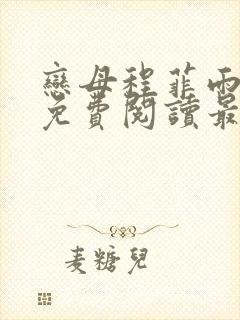 戀母程菲雨
免費閱讀最
麦糖兒